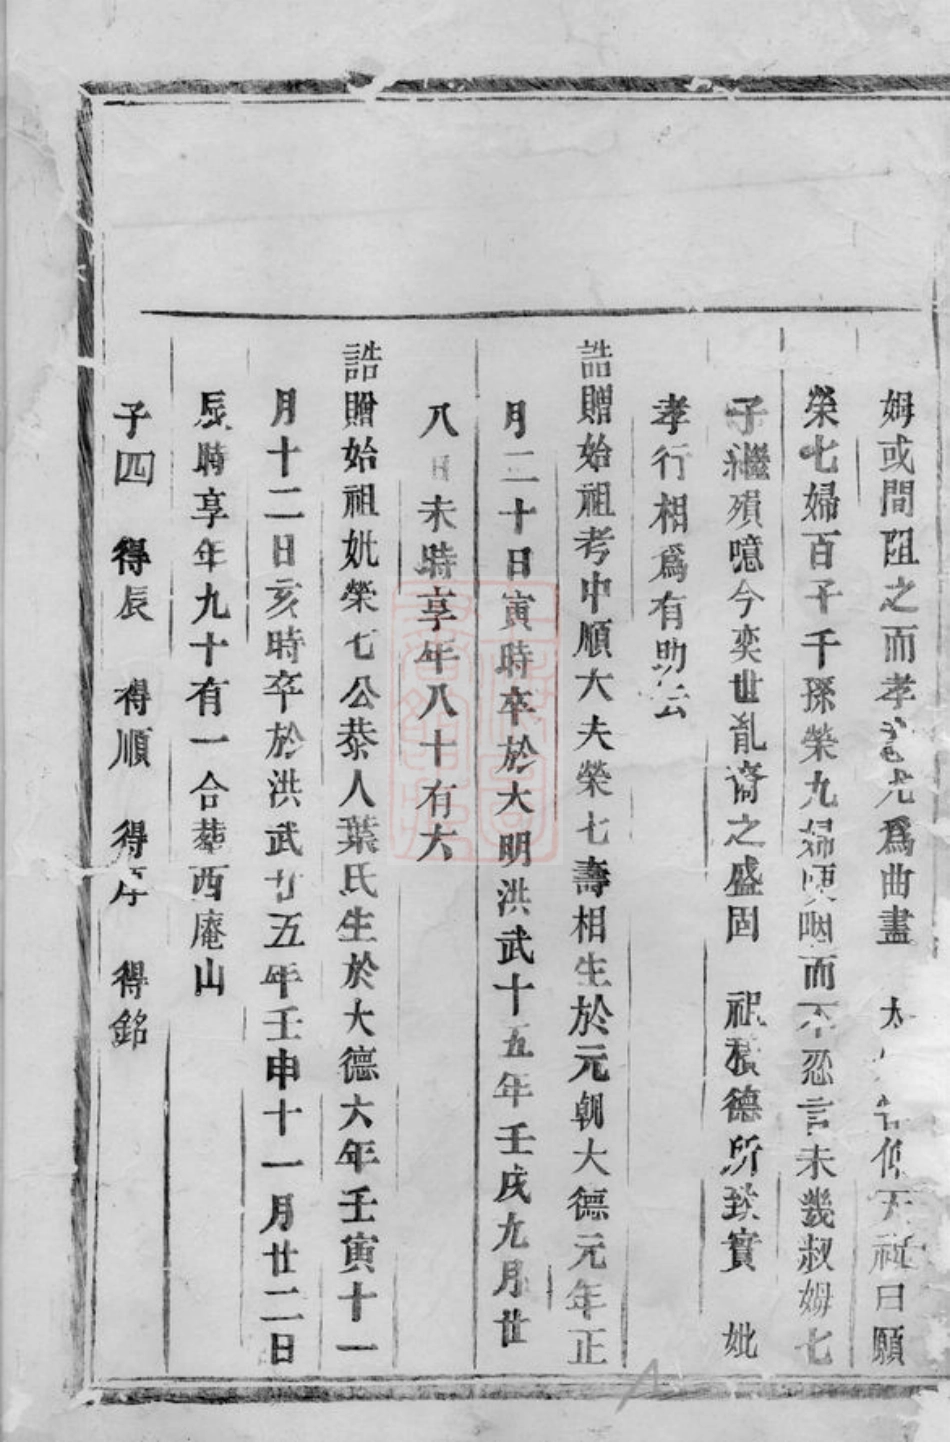 姆或間阻之而孝尤爲曲盡 太仰天祝曰願
榮七婦百子千孫榮九婦哽咽而不忍言未幾叔姆七
子繼殞噫今奕世胤裔之盛固 祖積德所致實 妣
孝行相爲有助云
誥贈始祖考中順大夫榮七壽相生於元朝大德元年正
月二十日寅時卒於大明洪武十五年壬戌九月廿
八日未時享年八十有六
誥贈始祖妣榮七公恭人葉氏生於大德六年壬寅十一
月十二日亥時卒於洪武廿五年壬申十一月廿二日
辰時享年九十有一合葬西庵山
子四 得辰 得順 得序 得銘